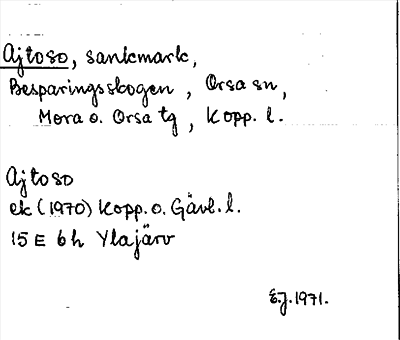 Ajtoso, sankmark,
Besparingsskogen, Orsa sn,
Mora o. Orsa tg, Kopp. l.
Ajtoso
ek (1970) Kopp. o. Gävl. l.
15 E 6 h Ylajärv
E.J. 1971.